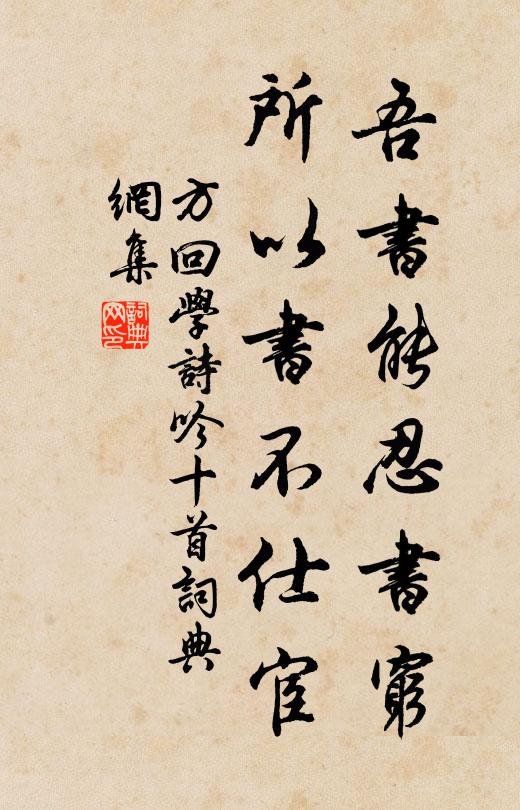 吾書能忍書窮
所以書不仕宦
方回學詩吟十首詞典
網集
詞典
网印